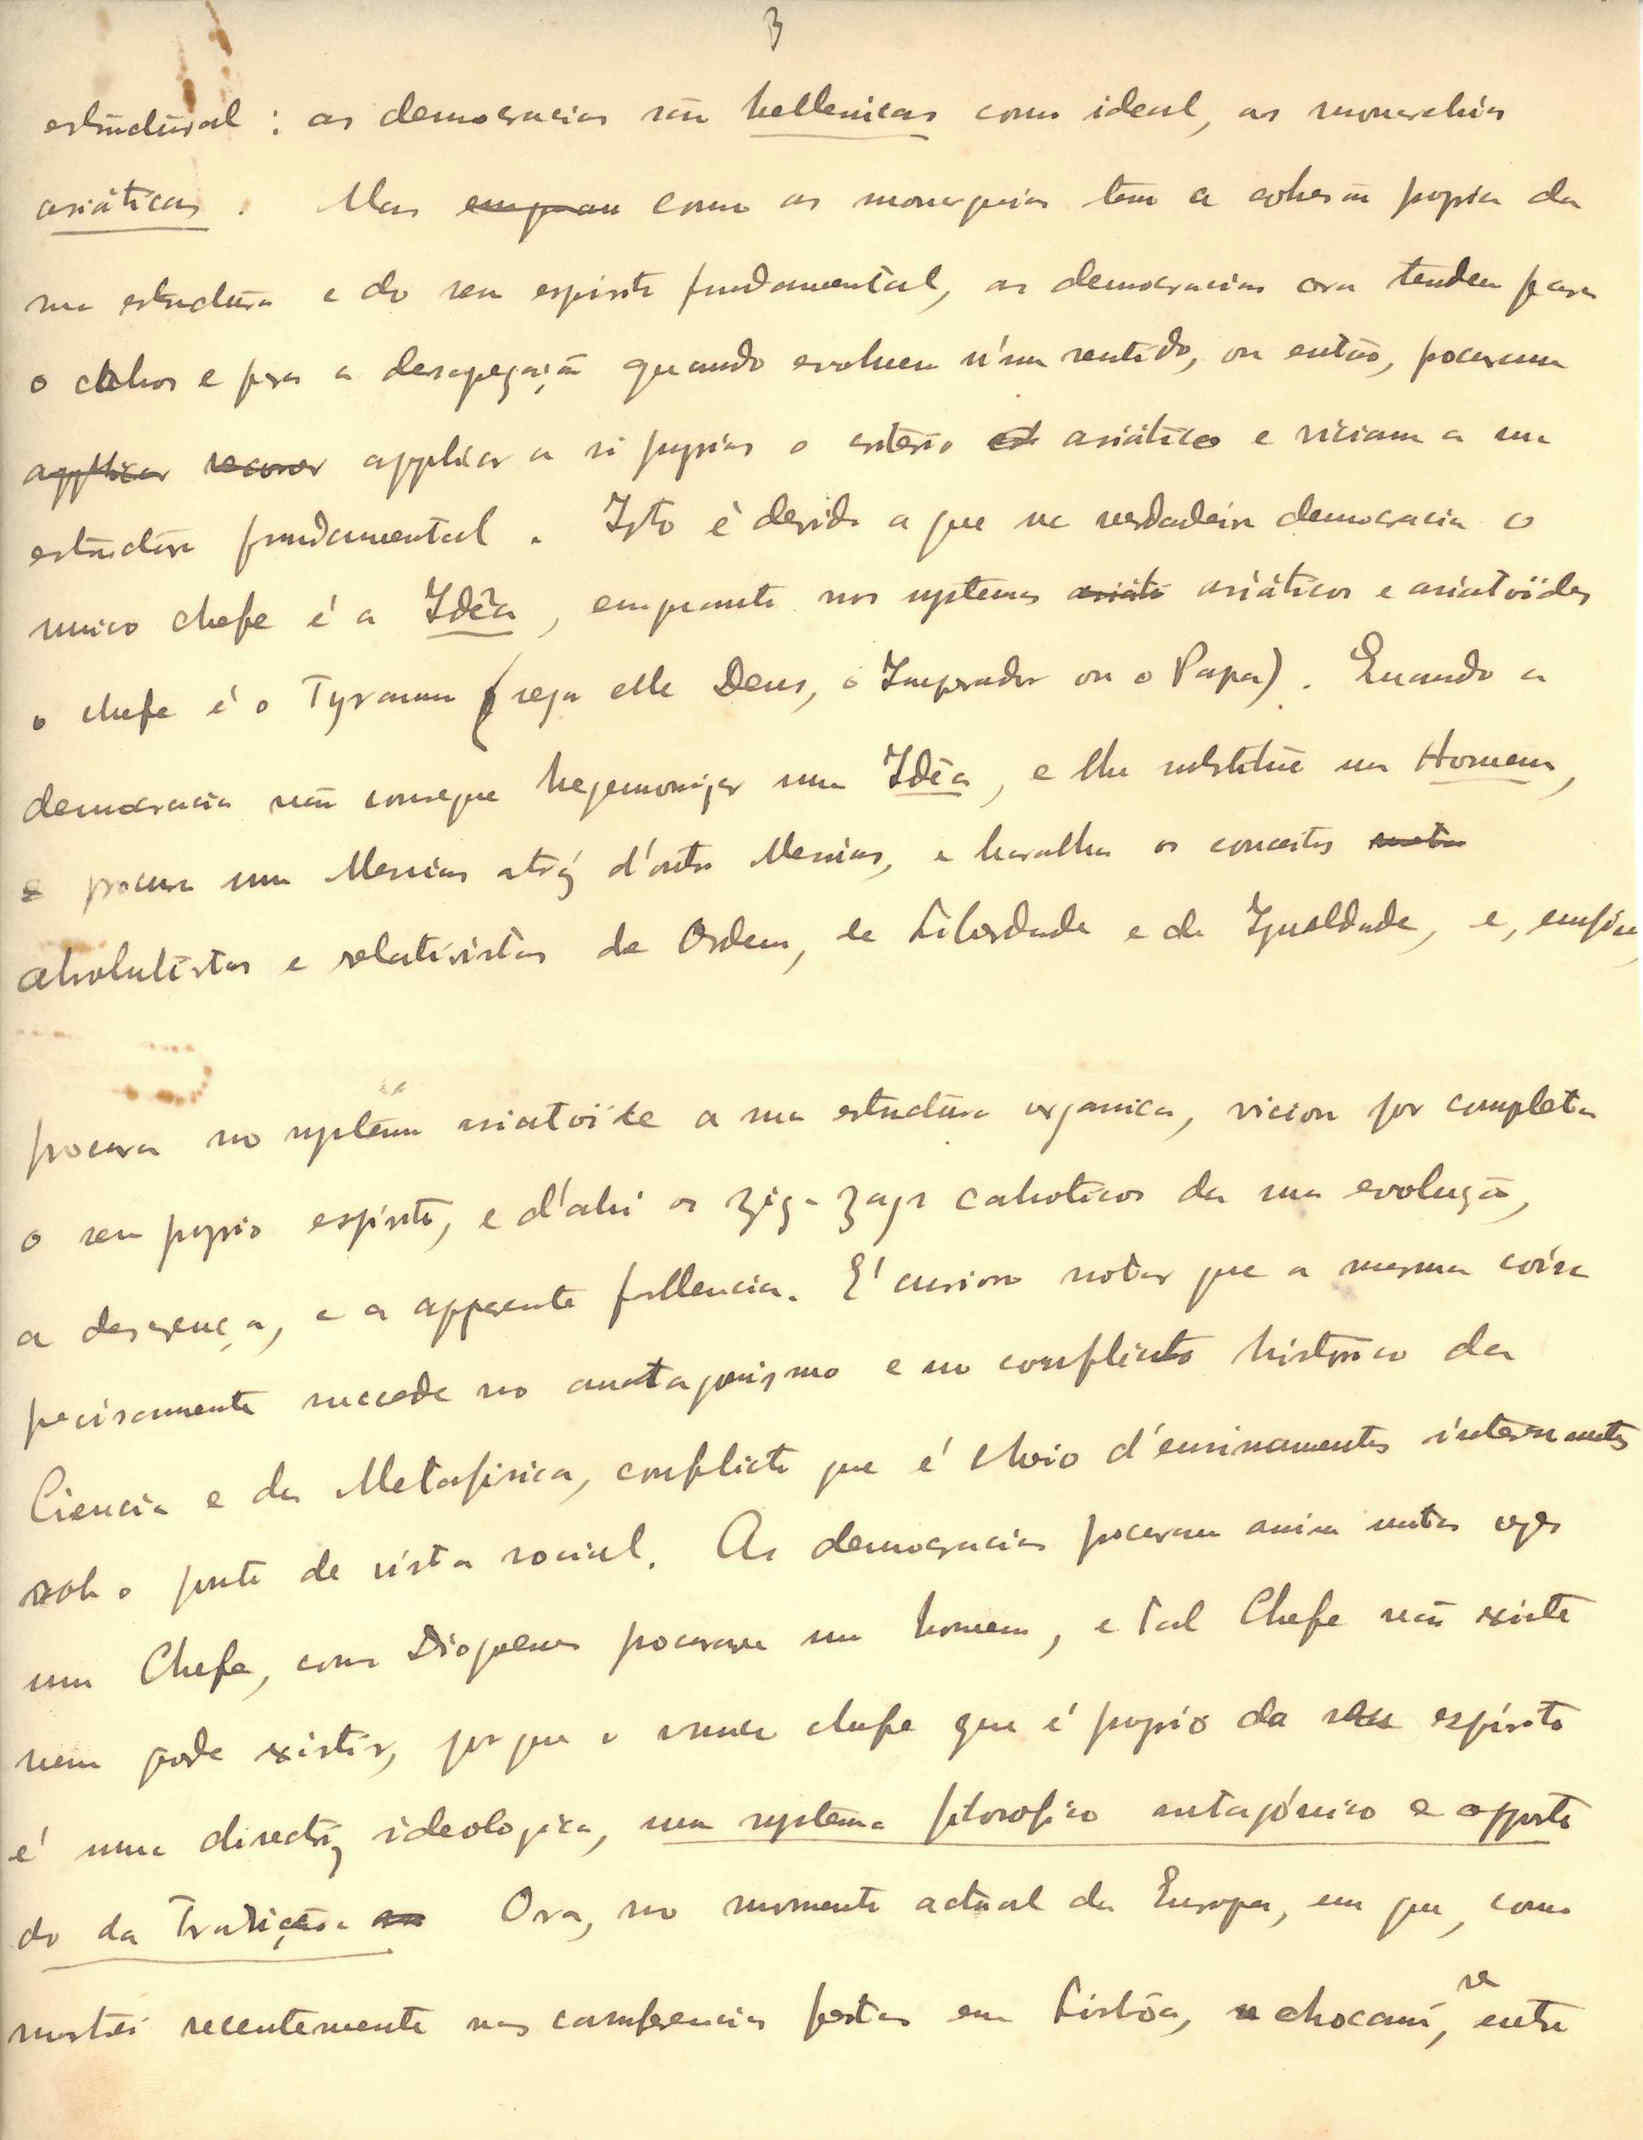 3
estructural : as democracias são hellenicas como ideal, as monarchias
asiáticas . Mas emquan como as monarquias tem a cohesão propria da
sua estructura e do seu espirito fundamental, as democracias ora tendem para
o cahos e para a desagregação quando evoluem n'um sentido, ou então, procuram
applicar recorrer applicar a si proprias o criterio asiático e viciam a sua
estructura fundamental . Isto é devido a que na verdadeira democracia o
unico chefe é a Idêa, emquanto nos systemas asiáti asiáticos e asiatoïdes
o chefe é o Tyranno (seja elle Deus, o Imperador ou o Papa). Quando a
democracia não consegue hegemonizar uma Idêa, e lhe substitue um Homem,
e procura um Messias atráz d'outro Messias, e baralha os conceitos
absolutistas e relativistas de Ordem, de Liberdade e de Igualdade, e, emfim,
procura no systema asiatoïde a sua estructura organica, viciou por completo
o seu proprio espirito, e d'ahi os zig-zags cahoticos da sua evolução,
a descrença, e a apparente fallencia. E' curioso notar que a mesma coisa
precisamente succede no antagonismo e no conflicto histórico da
Ciencia e da Metafisica, conflicto que é cheio d'ensinamentos interessantes
sob o ponto de vista social. As democracias procuram assim muitas vezes
um Chefe, como Diogenes procurava um homem, e tal Chefe não existe
nem pode existir, porque o unico chefe que é proprio da seu espirito
é uma directriz ideologica, um systema filosofico antagónico e opposto
do da Tradição Ora, no momento actual da Europa, em que, como
mostrei recentemente nas conferencias feitas em Lisbôa, se chocam, se entre